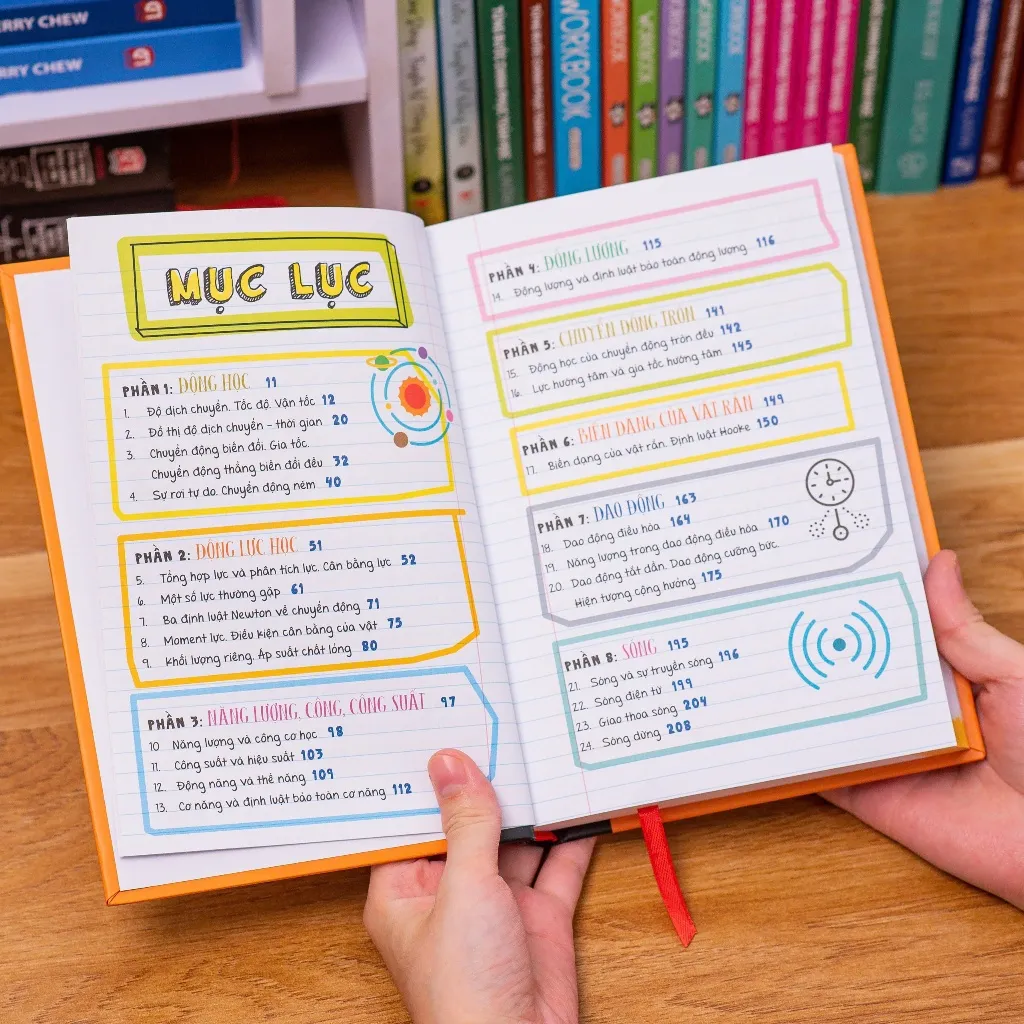 ERRY CHEW
RRY CHEW
WORKBOOK
MỤC LỤC
PHẦN 1: ĐỘNG HỌC 11
1. Độ dịch chuyển. Tốc độ. Vận tốc 12
2. Đồ thị độ dịch chuyển - thời gian 20
3. Chuyển động biến đổi. Gia tốc.
Chuyển động thẳng biến đổi đều 32
4. Sự rơi tự do. Chuyển động ném 40
PHẦN 2: ĐỘNG LỰC HỌC 51
5. Tổng hợp lực và phân tích lực. Cân bằng lực 52
6. Một số lực thường gặp 61
7. Ba định luật Newton về chuyển động 71
8. Moment lực. Điều kiện cân bằng của vật 75
9. Khối lượng riêng. Áp suất chất lỏng 80
PHẦN 3: NĂNG LƯỢNG, CÔNG, CÔNG SUẤT 97
10 Năng lượng và công cơ học 98
11. Công suất và hiệu suất 103
12. Động năng và thế năng 109
13. Cơ năng và định luật bảo toàn cơ năng 112
PHẦN 4: ĐỘNG LƯỢNG 115
14. Động lượng và định luật bảo toàn động lượng 116
PHẦN 5: CHUYỂN ĐỘNG TRÒN 141
15. Động học của chuyển động tròn đều 142
16. Lực hướng tâm và gia tốc hướng tâm 145
PHẦN 6: BIẾN DẠNG CỦA VẬT RẮN 149
17. Biến dạng của vật rắn. Định luật Hooke 150
PHẦN 7: DAO ĐỘNG 163
18. Dao động điều hòa 164
19. Năng lượng trong dao động điều hòa 170
20. Dao động tắt dần. Dao động cưỡng bức.
Hiện tượng cộng hưởng 175
PHẦN 8: SÓNG 195
21. Sóng và sự truyền sóng 196
22. Sóng điện từ 199
23. Giao thoa sóng 204
24. Sóng dừng 208